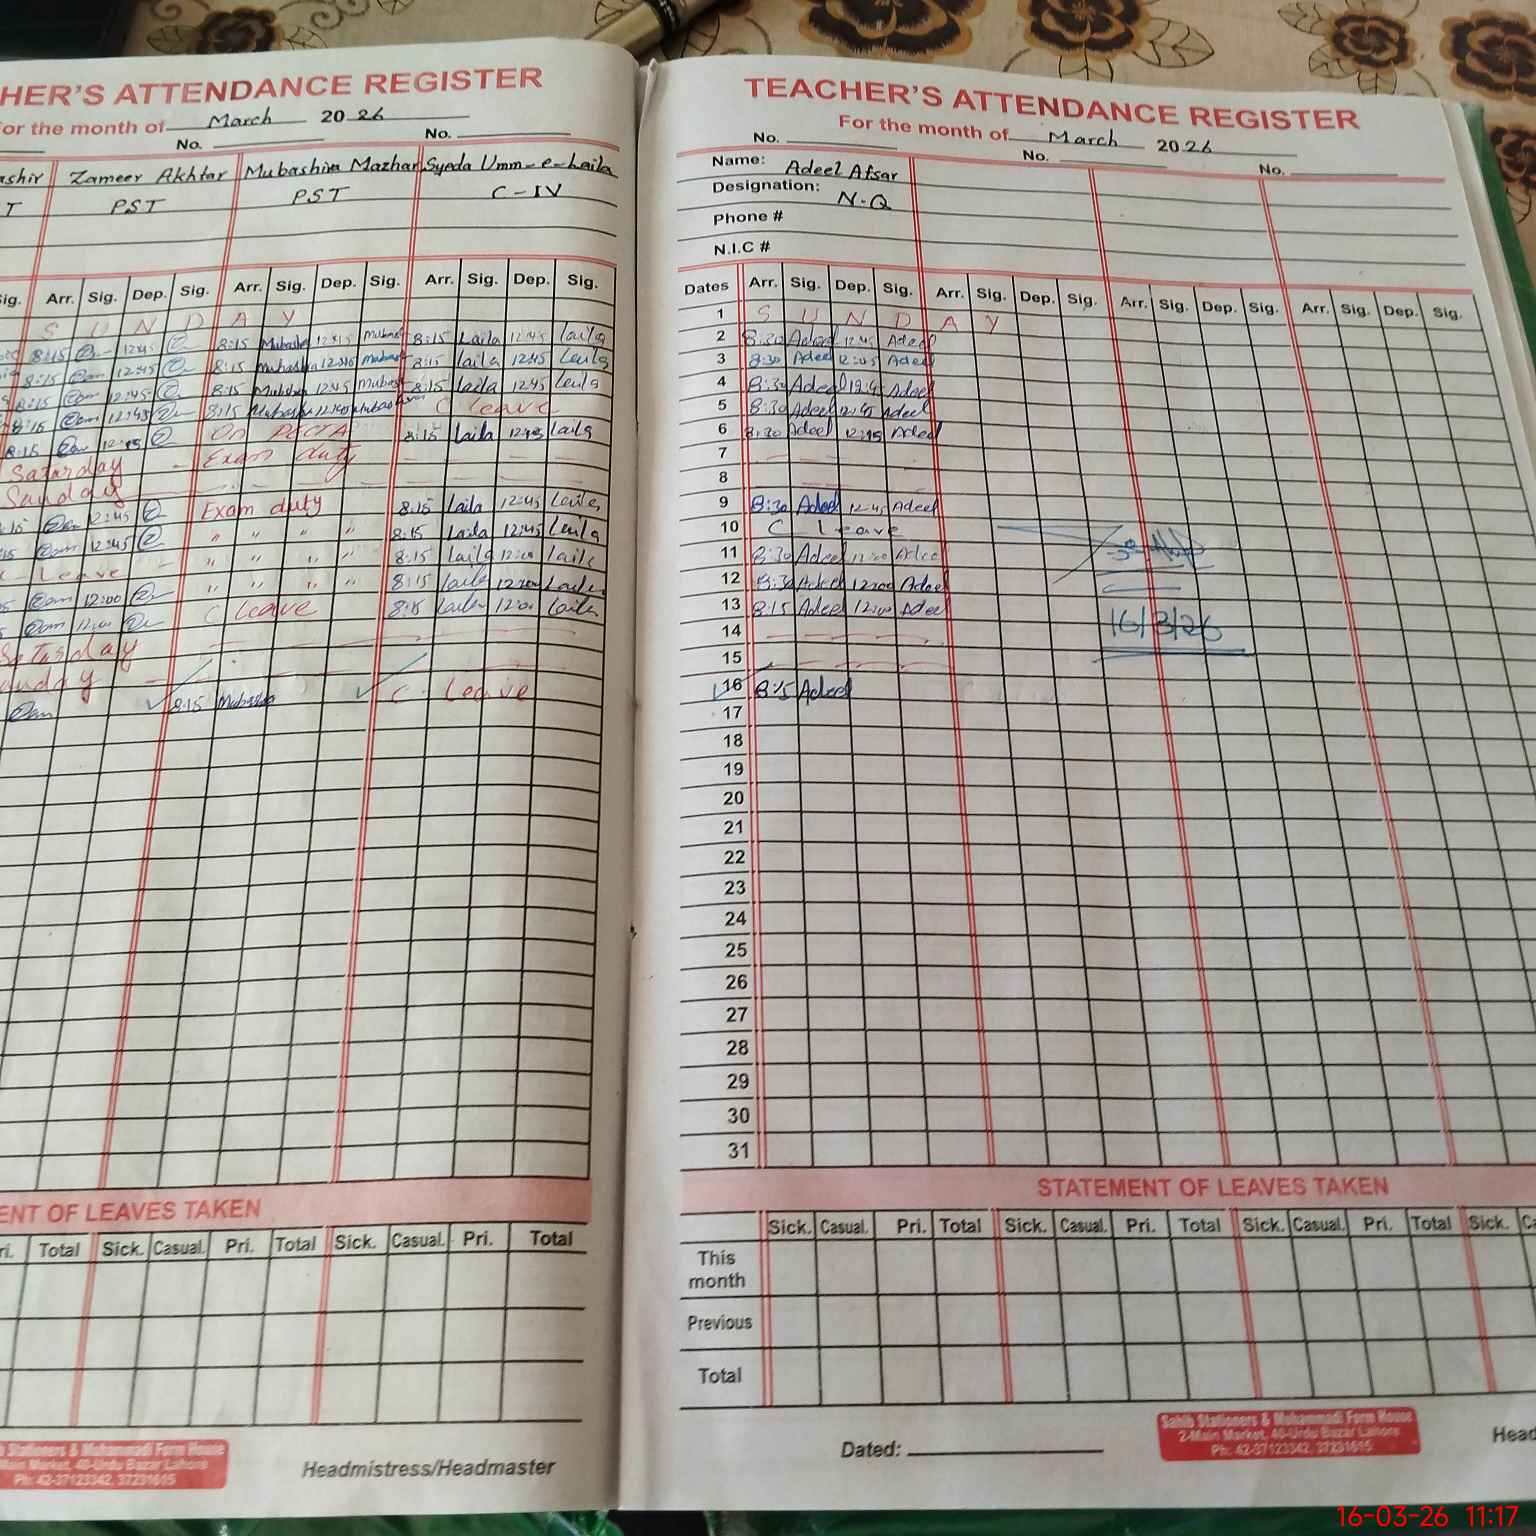 HER'S ATTENDANCE REGISTER
For the month of March 20 26
No. No.
ashir Zameer Akhtar Mubashira Mazhar Syeda Umm-e-Laila
T PST PST C-IV
Sig. Arr. Sig. Dep. Sig. Arr. Sig. Dep. Sig. Arr. Sig. Dep. Sig.
S U N D A Y
8:15 12:45 8:15 12:45 8:15 Laila 12:45 Laila
8:15 12:45 8:15 12:45 8:15 Laila 12:45 Laila
8:15 12:45 8:15 12:45 8:15 Laila 12:45 Laila
8:15 12:45 8:15 C leave
8:15 12:45 On PECTA 8:15 Laila 12:45 Laila
Saturday Exam duty
Sunday
15 12:45 Exam duty 8:15 Laila 12:45 Laila
15 12:45 " " " " 8:15 Laila 12:45 Laila
Leave " " " " 8:15 Laila 12:00 Laila
12:00 " " " " 8:15 Laila 12:00 Laila
12:00 C leave 8:15 Laila 12:00 Laila
Saturday
unday
8:15 C - Leave
ENT OF LEAVES TAKEN
ri. Total Sick. Casual. Pri. Total Sick. Casual. Pri. Total
Stationers & Muhammadi Form House
Main Market, 40-Urdu Bazar Lahore
Ph: 42-37123342, 37231615
Headmistress/Headmaster
TEACHER'S ATTENDANCE REGISTER
For the month of March 20 26
No. No. No.
Name: Adeel Afsar
Designation: N-Q
Phone #
N.I.C #
Dates Arr. Sig. Dep. Sig. Arr. Sig. Dep. Sig. Arr. Sig. Dep. Sig. Arr. Sig. Dep. Sig.
1 S U N D A Y
2 8:30 Adeel 12:45 Adeel
3 8:30 Adeel 12:45 Adeel
4 8:30 Adeel 12:45 Adeel
5 8:30 Adeel 12:45 Adeel
6 8:30 Adeel 12:45 Adeel
7
8
9 8:30 Adeel 12:45 Adeel
10 C Leave
11 8:30 Adeel 12:00 Adeel
12 8:30 Adeel 12:00 Adeel
13 8:15 Adeel 12:00 Adeel
16/3/26
14
15
16 8:15 Adeel
17
18
19
20
21
22
23
24
25
26
27
28
29
30
31
STATEMENT OF LEAVES TAKEN
Sick. Casual. Pri. Total Sick. Casual. Pri. Total Sick. Casual. Pri. Total Sick. Ca
This month
Previous
Total
Dated:
Sahib Stationers & Muhammadi Form House
2-Main Market, 40-Urdu Bazar Lahore
Ph: 42-37123342, 37231615
Head
16-03-26 11:17